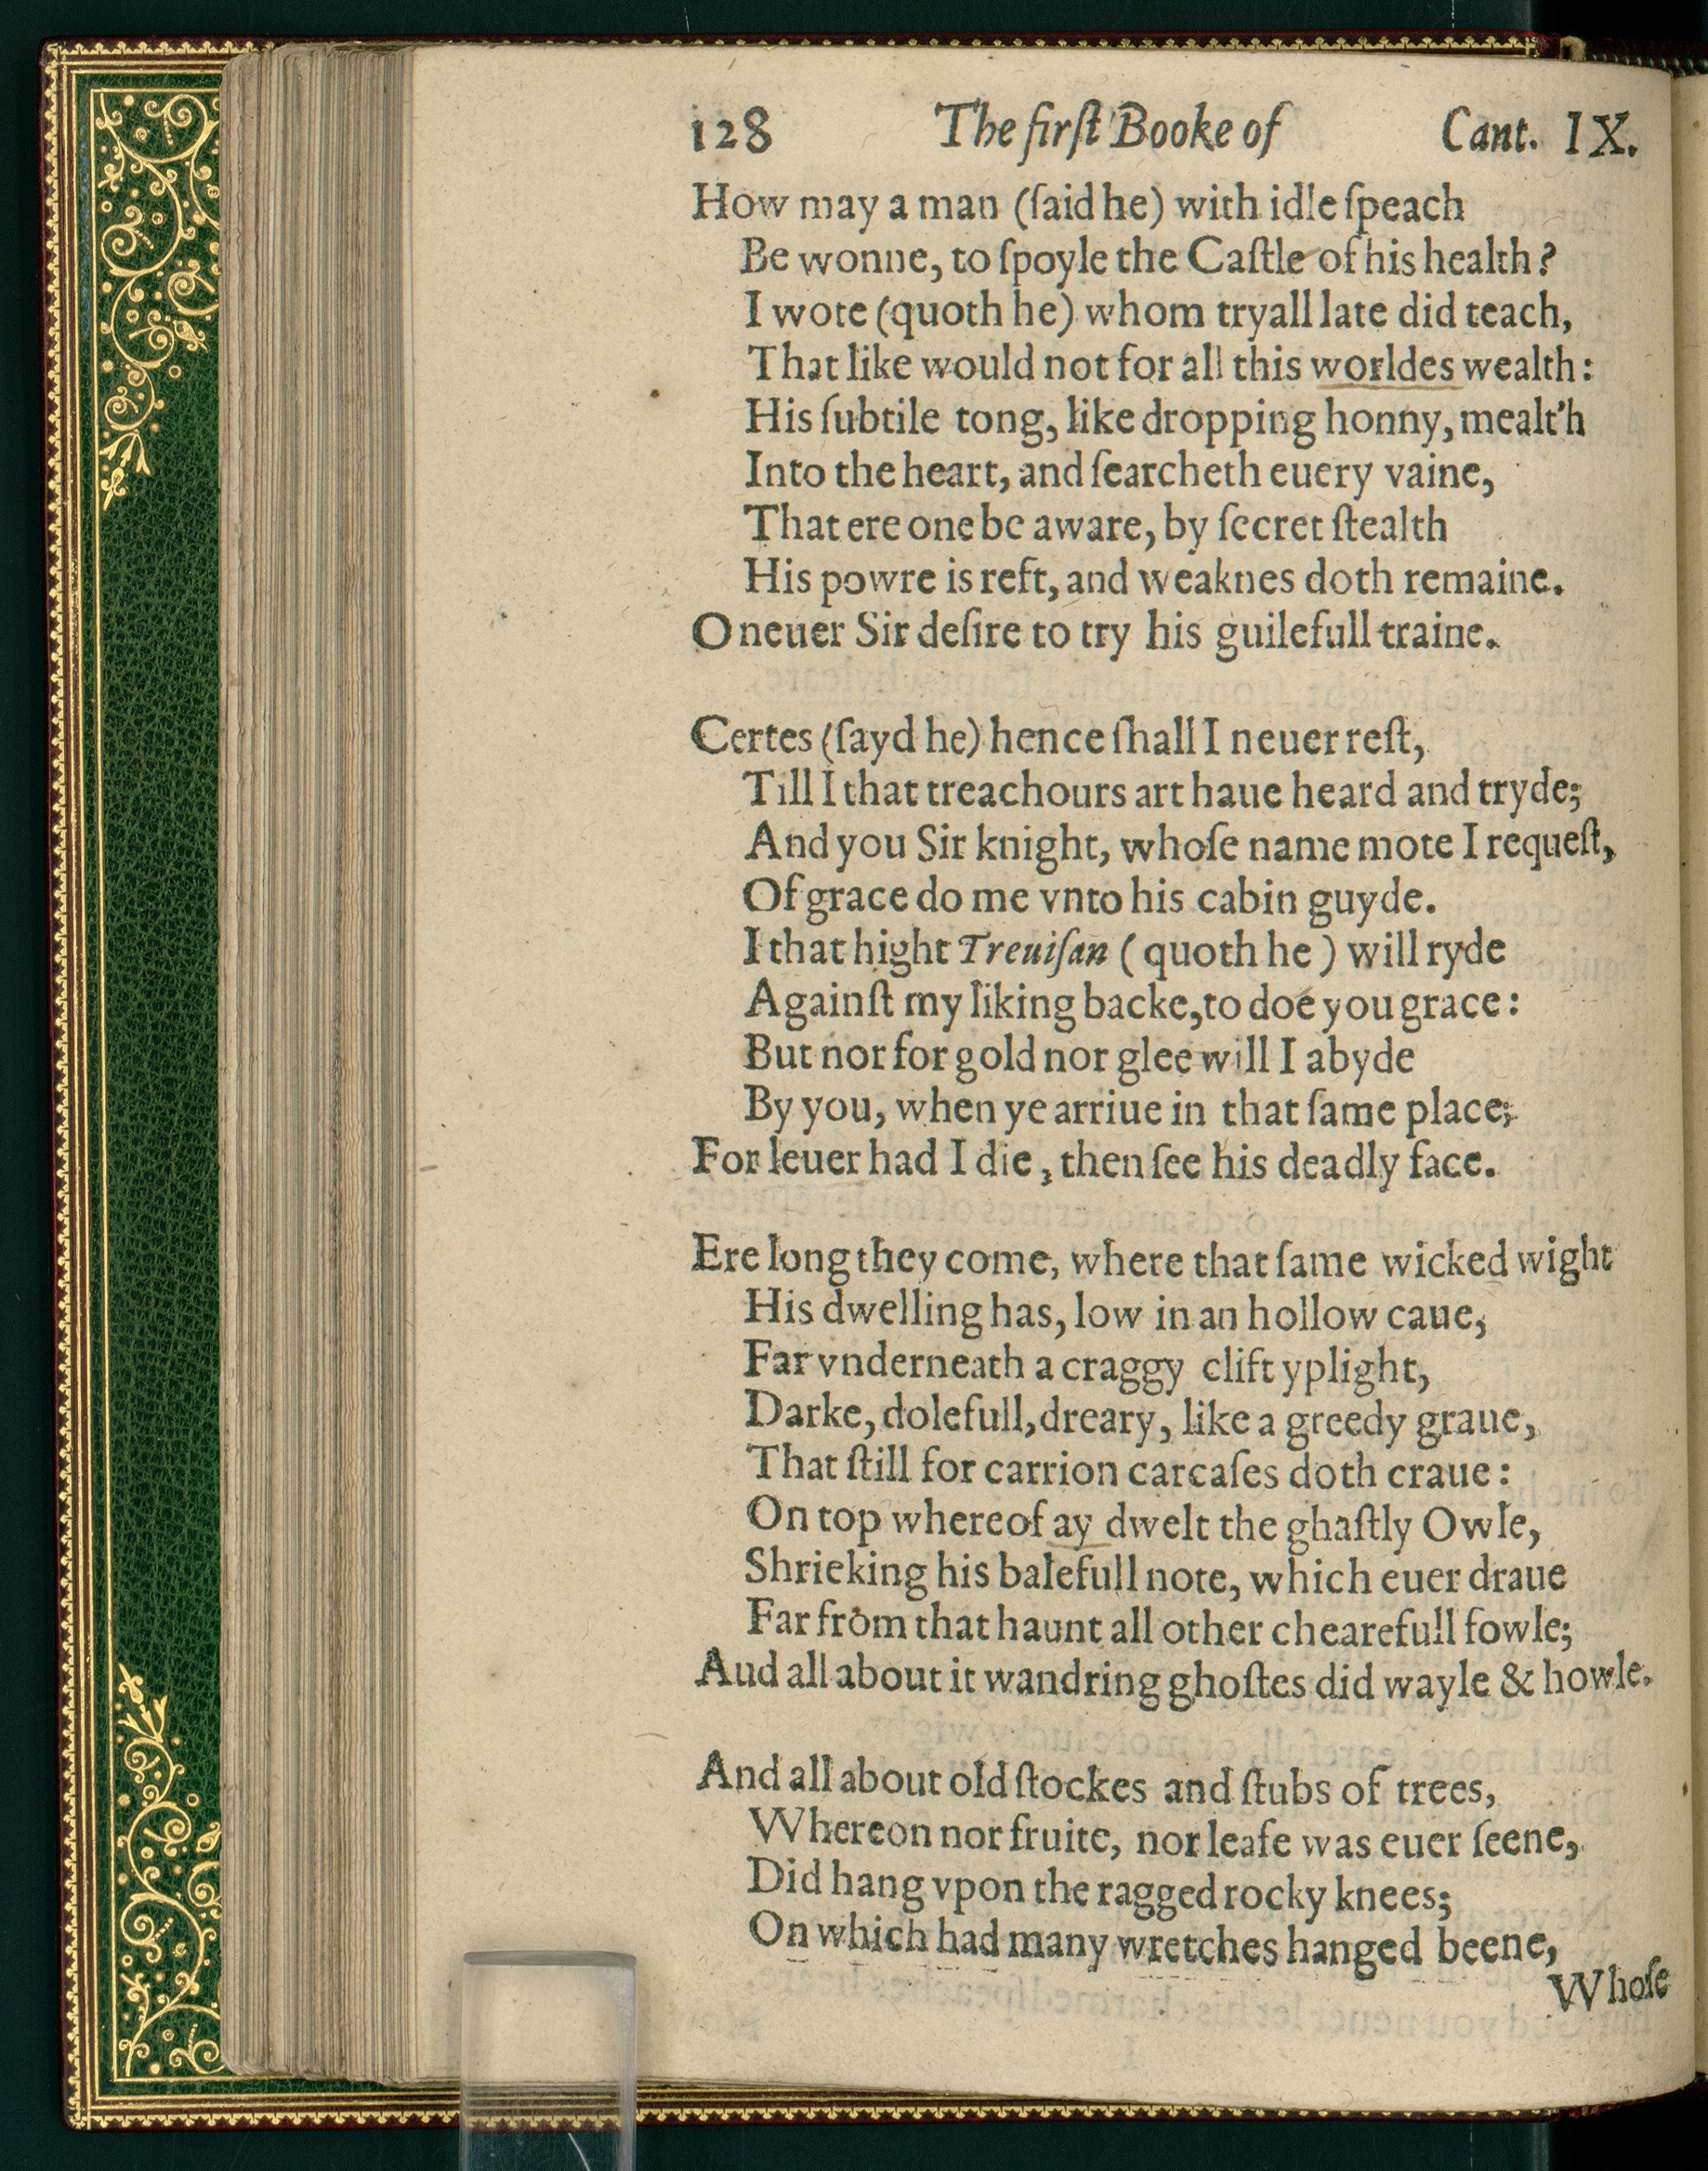 128 The firſt Booke of Cant. IX.
How may a man (ſaid he) with idle ſpeach
Be wonne, to ſpoyle the Caſtle of his health?
I wote (quoth he) whom tryall late did teach,
That like would not for all this worldes wealth:
His ſubtile tong, like dropping honny, mealt'h
Into the heart, and ſearcheth euery vaine,
That ere one be aware, by ſecret ſtealth
His powre is reft, and weaknes doth remaine.
O neuer Sir deſire to try his guilefull traine.
Certes (ſayd he) hence ſhall I neuer reſt,
Till I that treachours art haue heard and tryde;
And you Sir knight, whoſe name mote I requeſt,
Of grace do me vnto his cabin guyde.
I that hight Treuiſan (quoth he) will ryde
Againſt my liking backe, to doe you grace:
But nor for gold nor glee will I abyde
By you, when ye arriue in that ſame place;
For leuer had I die, then ſee his deadly face.
Ere long they come, where that ſame wicked wight
His dwelling has, low in an hollow caue,
Far vnderneath a craggy clift yplight,
Darke, dolefull, dreary, like a greedy graue,
That ſtill for carrion carcaſes doth craue:
On top whereof ay dwelt the ghaſtly Owle,
Shrieking his balefull note, which euer draue
Far from that haunt all other chearefull fowle;
Aud all about it wandring ghoſtes did wayle & howle.
And all about old ſtockes and ſtubs of trees,
Whereon nor fruite, nor leafe was euer ſeene,
Did hang vpon the ragged rocky knees;
On which had many wretches hanged beene,
Whoſe